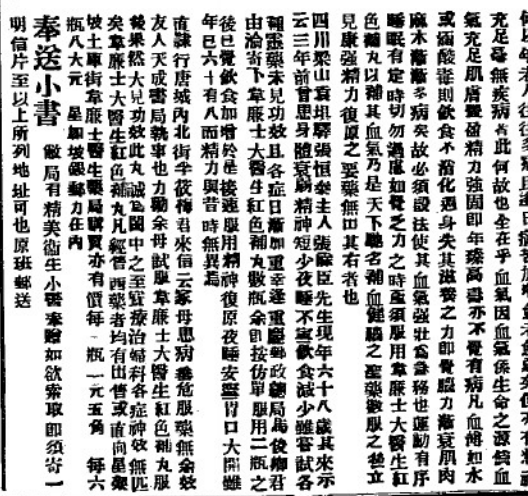 充足毫無疾病者此何故也全在乎血氣因血氣係生命之源倘血
氣充足肌膚豐盈精力強固即年臻高壽亦不覺有病凡血如水
或酒酸毒則飲食不消化週身失其滋養之力即覺腦力漸衰肌肉
麻木漸漸多病矣故必須設法使其血氣強壯為急務也運動有序
睡眠有定時切勿過度如覺乏力之時亟須服用韋廉士大醫生紅
色補丸以補其血氣乃是天下馳名補血健腦之聖藥數服之後立
見康強精力復原之要藥無出其右者也
四川梁山袁垻驛張恒泰主人張霖臣先生現年六十八歲其來示
云三年前曾患身體衰弱精神短少夜睡不寧飲食減少雖嘗試各
種靈藥未見功效且各症日漸加重幸逢重慶郵政總局馬俊卿君
由渝寄下韋廉士大醫生紅色補丸數瓶余即按仿單服用二瓶之
後已覺飲食加增於是接連服用精神復原夜睡安寧胃口大開雖
年已六十有八而精力與昔時無異焉
直隸行唐城內北街李筱梅君來信云家母患病垂危服藥無余效
友人天成書局執事也力勸余母試服韋廉士大醫生紅色補丸服
後果然大見功效此丸誠為閫中之至寶療治婦科各症神效無匹
矣韋廉士大醫生紅色補丸凡經售西藥者均有出售或直向星架
坡土庫街韋廉士醫生藥局購買亦有價每一瓶一元五角 每六
瓶八大元 星加坡銀郵力在內
奉送小書 敝局有精美衛生小書奉贈如欲索取即須寄一
明信片至以上所列地址可也原班郵送